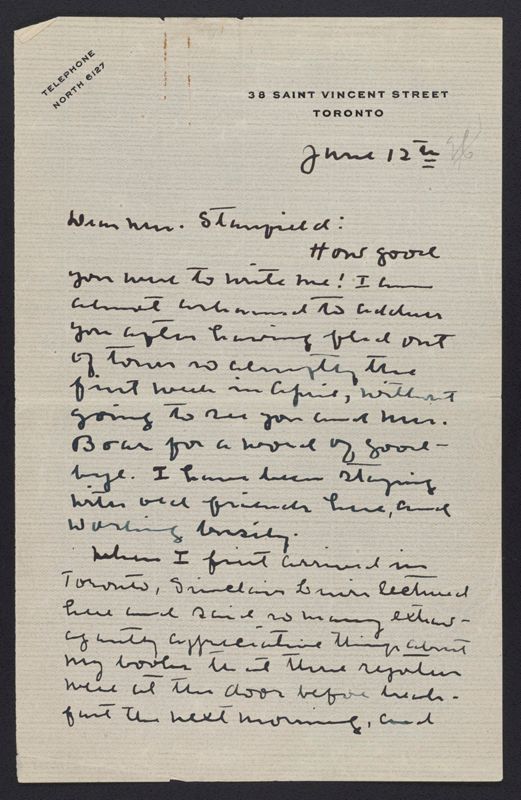 TELEPHONE
NORTH 6127
38 SAINT VINCENT STREET
TORONTO
June 12th
Dear Mrs. Stanfield:
How good
you were to write me! I am
almost ashamed to address
you after having fled out
of town so abruptly the
first week in April, without
going to see you and Mrs.
Boas for a word of good-
bye. I have been staying
with old friends here, and
working busily.
When I first arrived in
Toronto, Sinclair Lewis lectured
here and said so many extrav-
agantly appreciative things about
my books that three reporters
were at the door before break-
fast the next morning, and